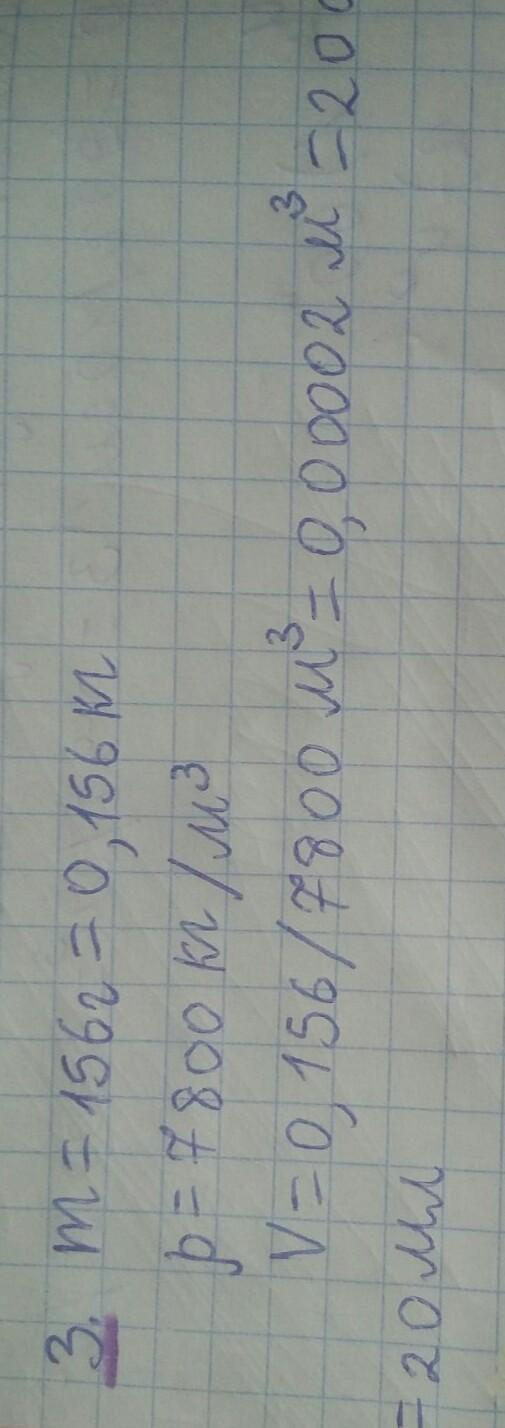 3. m = 156г = 0,156 кг
p = 7800 кг/м³
V = 0,156/7800 м³ = 0,00002 м³ = 20
= 20 мл